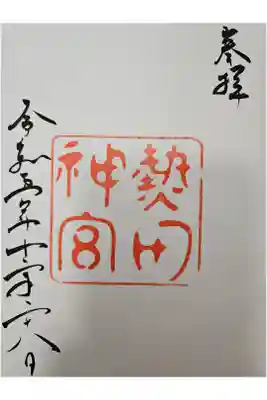 奉拝
熱田
神宮
令和五年 月 八日